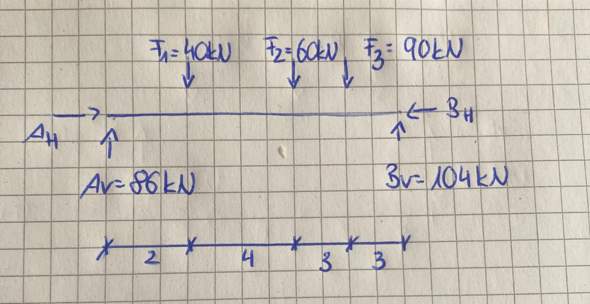 F₁=40kN F₂=60kN F₃= 90kN
A_H B_H
Av=86kN Bv=104kN
2 4 3 3